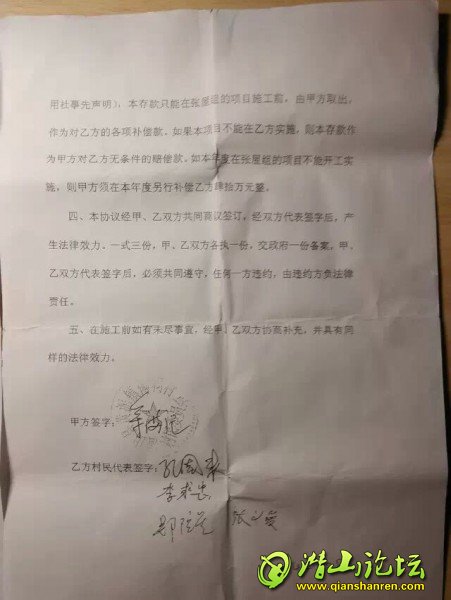 用社事先声明），本存款只能在张屋组的项目施工前，由甲方取出，
作为对乙方的各项补偿款。如果本项目不能在乙方实施，则本存款作
为甲方对乙方无条件的赔偿款。如本年度在张屋组的项目不能开工实
施，则甲方须在本年度另行补偿乙方肆拾万元整。
四、本协议经甲、乙双方共同商议签订，经双方代表签字后，产
生法律效力。一式三份，甲、乙双方各执一份，交政府一份备案，甲、
乙双方代表签字后，必须共同遵守，任何一方违约，由违约方负法律
责任。
五、在施工前如有未尽事宜，经甲、乙双方协商补充，并具有同
样的法律效力。
甲方签字：
乙方村民代表签字：
潜山论坛
www.qianshanren.com